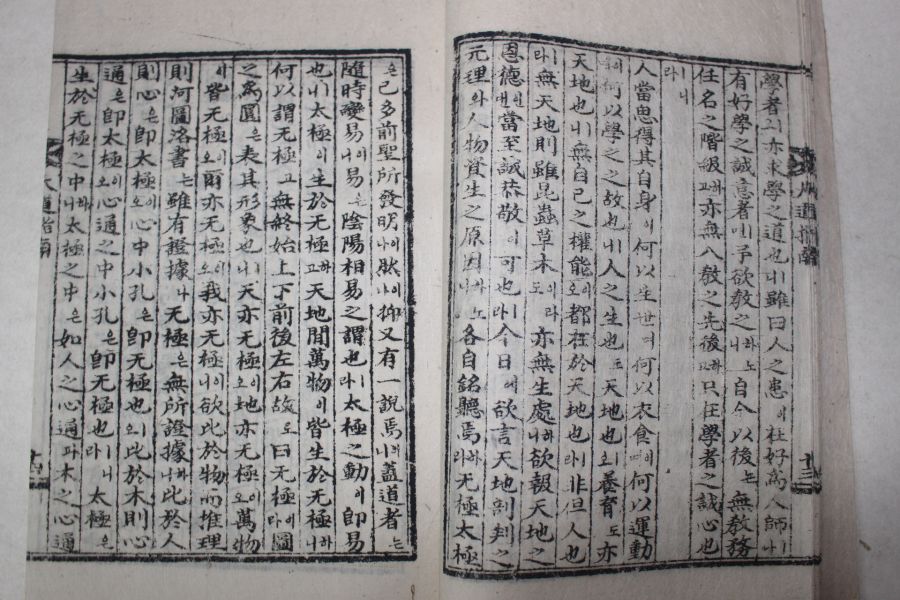 學者의亦求學之道也니雖曰人之患이在好爲人師나
有好學之誠意者면予欲敎之하노니自今以後는無敎務
任名之階級고亦無入敎之先後고只在學者之誠心也
라니
人當思得其自身이何以生世며何以衣食이며何以運動
何以學之之故也니人之生也도天地也의養育도亦
天地也니無自己之權能오都在於天地也라非但人也
라無天地則雖昆蟲草木이라도亦無生處니欲報天地之
恩德인當至誠恭敬이可也라今日에欲言天地剖判之
元理와人物資生之原因하노니各自銘聽焉하라无極太極
은已多前聖所發明이나然이나抑又有一說焉하니蓋道者는
隨時變易이니易은陰陽相易之謂也라太極之動이卽易
也니太極이生於无極하고天地間萬物이皆生於无極하니
何以謂无極고無終始上下前後左右故로曰无極이라圖
之爲圓은表其形象也니天亦无極이오地亦无極이오萬物
이皆无極이오爾亦无極이오我亦无極이니欲此於物而推理
則河圖洛書는雖有證據나无極은無所證據니比於人
則心은卽太極이오心中小孔은卽无極也오比於木則心
通은卽太極이오心通之中小孔은卽无極也라니太極은
生於无極之中하니无極之中은如人之心通과木之心通
大道指南